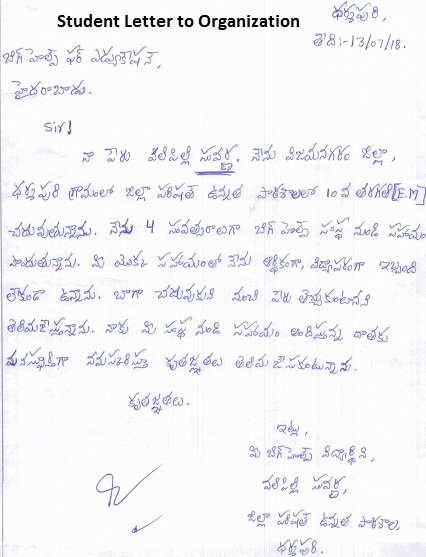 Student Letter to Organization
ధర్మపురి,
తేది:-13/07/18.
బిగ్ హెల్ప్ ఫర్ ఎడ్యుకేషన్,
హైదరాబాదు.
Sir!
నా పేరు వలిపిల్లి సువర్ణ. నేను విజయనగరం జిల్లా,
ధర్మపురి గ్రామంలో జిల్లా పరిషత్ ఉన్నత పాఠశాలలో 10వ తరగతి [E.M]
చదువుతున్నాను. నేను 4 సంవత్సరాలుగా బిగ్ హెల్ప్ సంస్థ నుండి సహాయం
పొందుతున్నాను. మీ యొక్క సహాయంతో నేను ఆర్థికంగా, విద్యాపరంగా ఇబ్బంది
లేకుండా ఉన్నాను. బాగా చదువుకుని మంచి పేరు తెచ్చుకుంటానని
తెలియజేస్తున్నాను. నాకు మీ సంస్థ నుండి సహాయం అందిస్తున్న దాతకు
మనస్ఫూర్తిగా నమస్కరిస్తూ కృతజ్ఞతలు తెలియజేసుకుంటున్నాను.
కృతజ్ఞతలు.
ఇట్లు,
మీ బిగ్ హెల్ప్ విద్యార్థిని,
వలిపిల్లి సువర్ణ,
జిల్లా పరిషత్ ఉన్నత పాఠశాల,
ధర్మపురి.